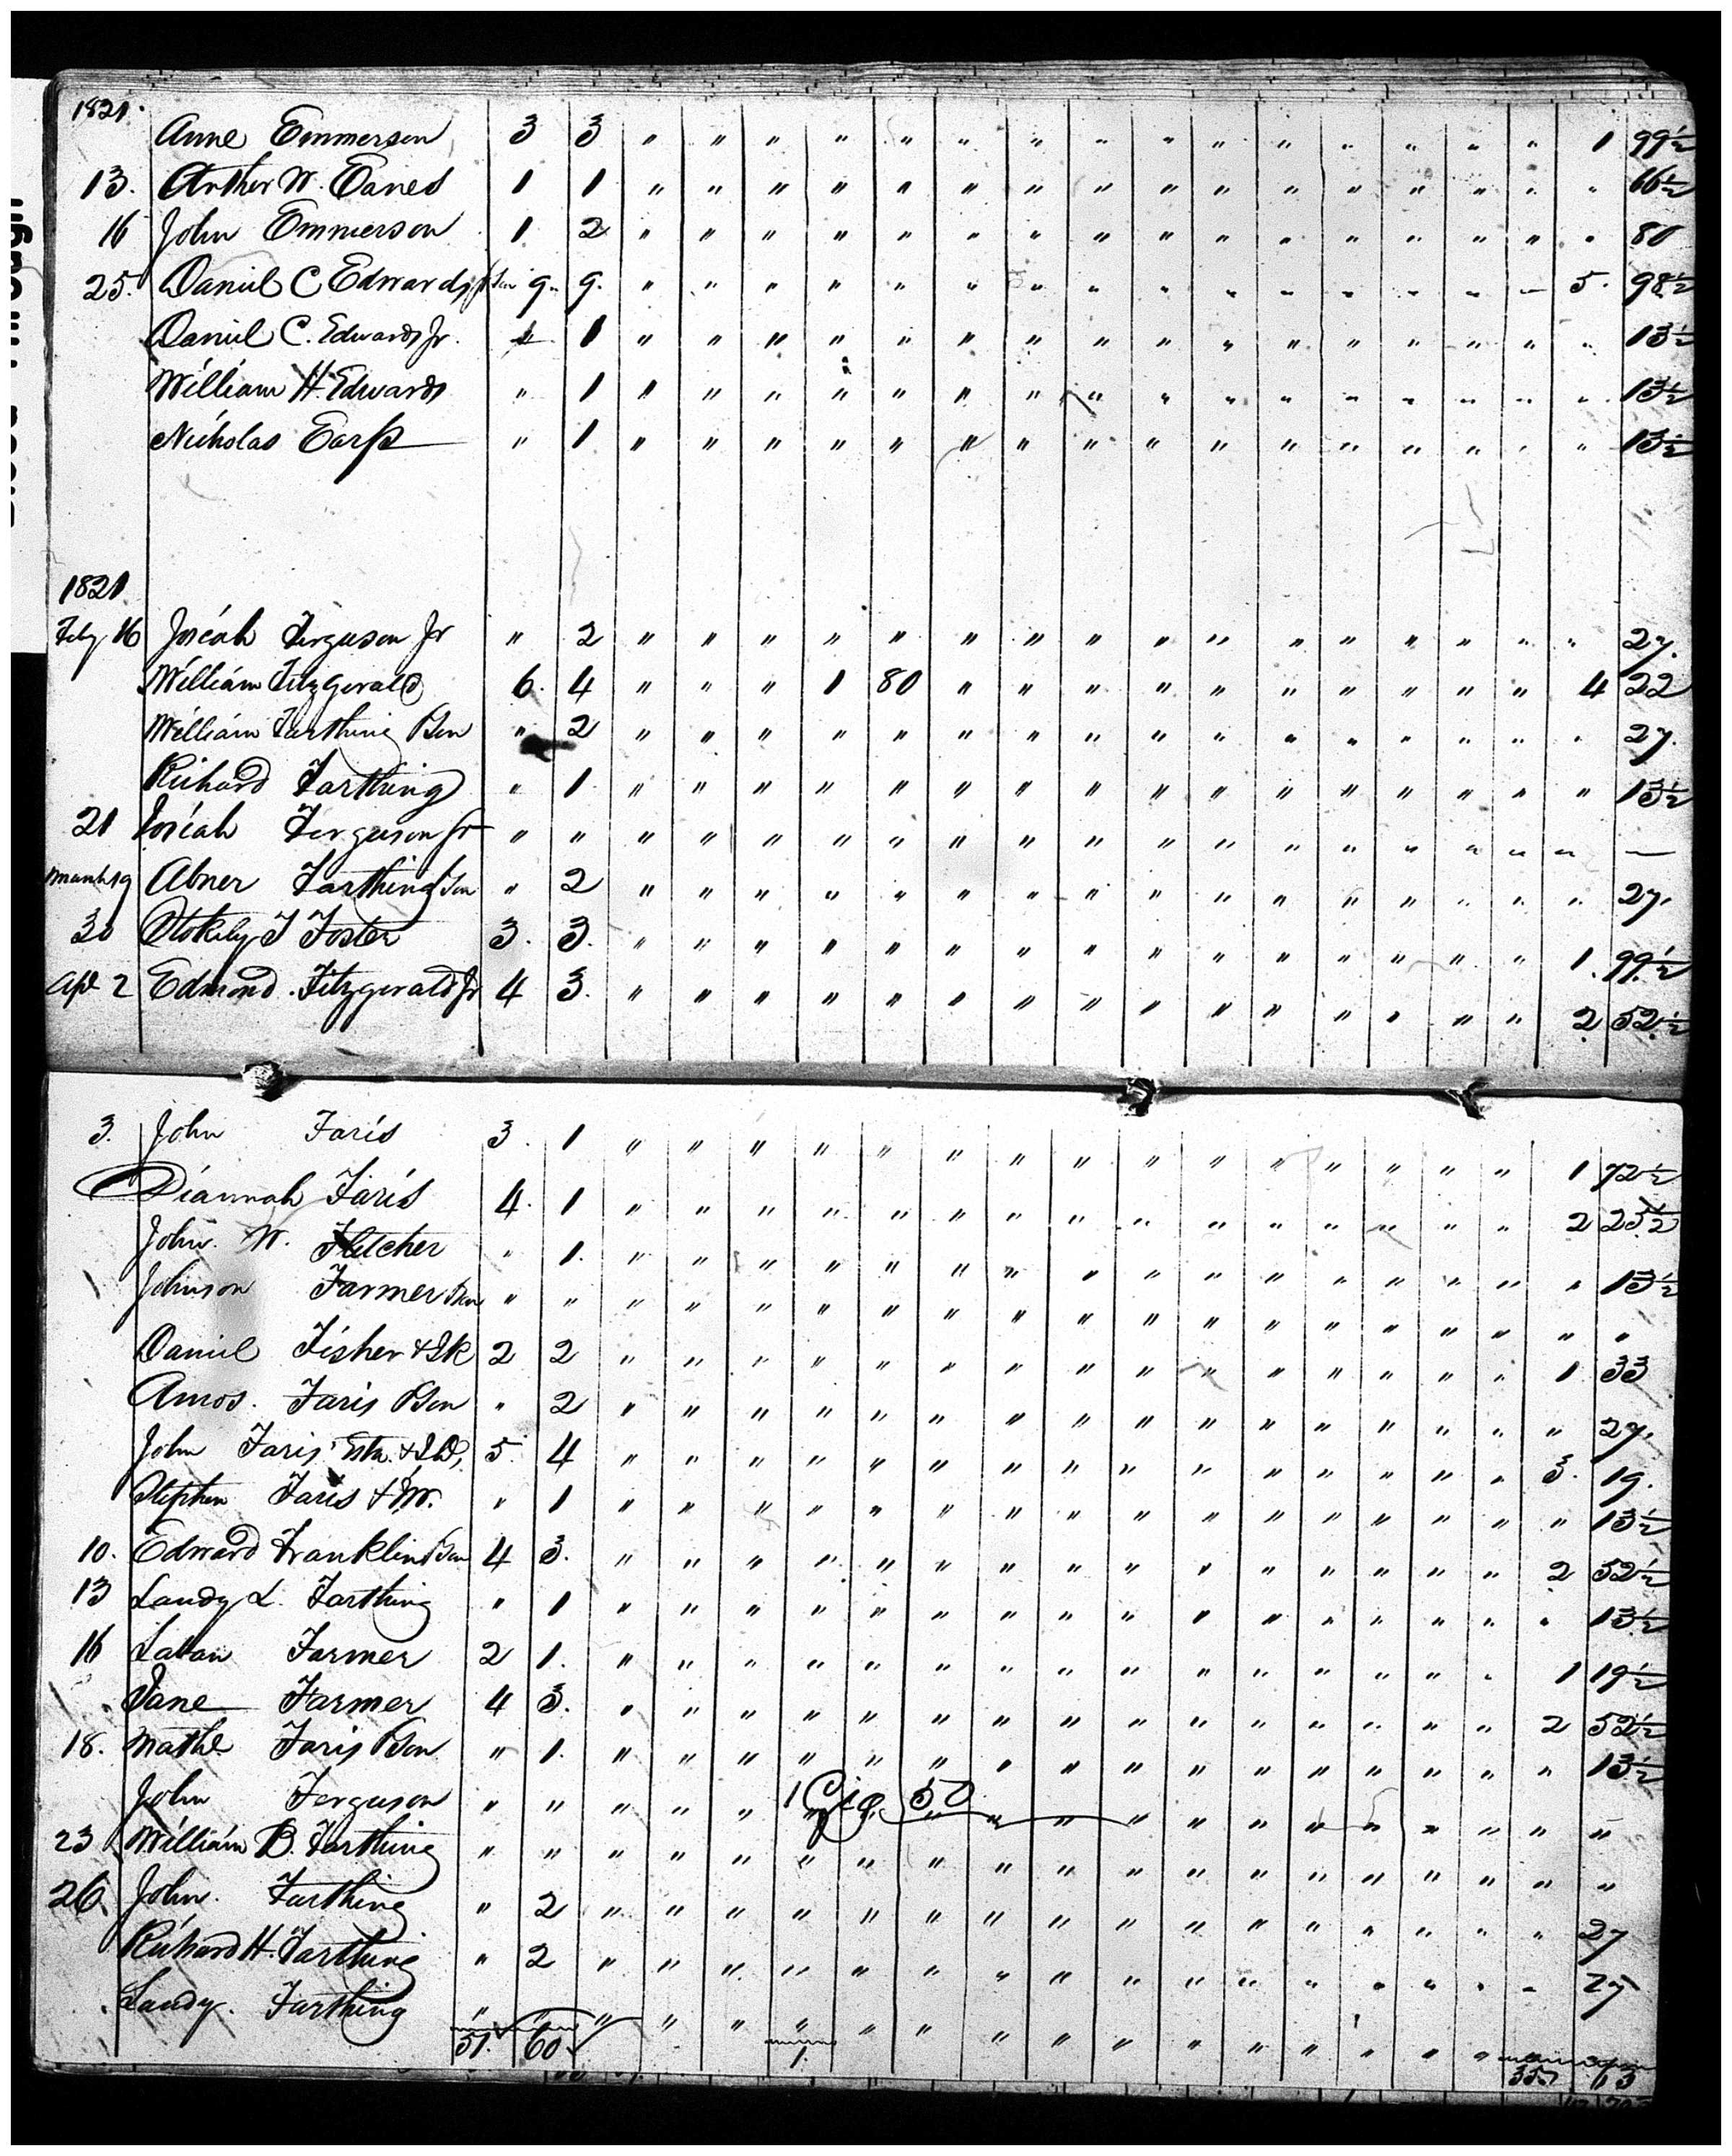 1821.
Anne Emmerson 3 3 " " " " " " " " " " " " " " " 1 99½
13. Arther W. Eanes 1 1 " " " " " " " " " " " " " " " " 66½
16 John Emmerson 1 2 " " " " " " " " " " " " " " " " 80
25. Daniel C Edwards 9 9 " " " " " " " " " " " " " " " 5. 98½
Daniel C. Edwards Jr. " 1 " " " " " " " " " " " " " " " " 13½
William H. Edwards " 1 " " " " " " " " " " " " " " " " 13½
Nicholas Earp " 1 " " " " " " " " " " " " " " " " 13½
1821
Feby 16 Josiah Ferguson Jr " 2 " " " " " " " " " " " " " " " " 27.
William Fitzgerald 6. 4 " " " 1 80 " " " " " " " " " " 4 22
William Farthing Sen " 2 " " " " " " " " " " " " " " " " 27.
Richard Farthing " 1 " " " " " " " " " " " " " " " " 13½
21 Josiah Ferguson Jr " " " " " " " " " " " " " " " " " " —
March 19 Abner Farthing Sen " 2 " " " " " " " " " " " " " " " " 27.
30 Stokely T Foster 3. 3. " " " " " " " " " " " " " " " 1. 99½
Apl 2 Edmond Fitzgerald Jr 4 3. " " " " " " " " " " " " " " " 2 52½
3. John Faris 3. 1 " " " " " " " " " " " " " " " 1 72½
Diannah Faris 4. 1 " " " " " " " " " " " " " " " 2 25½
John W. Fletcher " 1. " " " " " " " " " " " " " " " " 13½
Johnson Farmer " " " " " " " " " " " " " " " " " " "
Daniel Fisher 2 2 " " " " " " " " " " " " " " " 1 33
Amos. Faris Sen " 2 " " " " " " " " " " " " " " " " 27.
John Faris 5. 4 " " " " " " " " " " " " " " " 3. 19.
Stephen Faris " 1 " " " " " " " " " " " " " " " " 13½
10. Edward Franklin Sen 4 3. " " " " " " " " " " " " " " " 2 52½
13 Landy L. Farthing " 1 " " " " " " " " " " " " " " " " 13½
16 Laban Farmer 2 1. " " " " " " " " " " " " " " " 1 19½
Jane Farmer 4 3. " " " " " " " " " " " " " " " 2 52½
18. Mathe Faris Sen " 1. " " " " " " " " " " " " " " " " 13½
John Ferguson " " " " " 1 Gig 50 " " " " " " " " " " "
23 William B. Farthing " " " " " " " " " " " " " " " " " " "
26. John Farthing " 2 " " " " " " " " " " " " " " " " 27
Richard H. Farthing " 2 " " " " " " " " " " " " " " " " 27
Landy. Farthing " " " " " " " " " " " " " " " "
51. 60. 1. 35 63